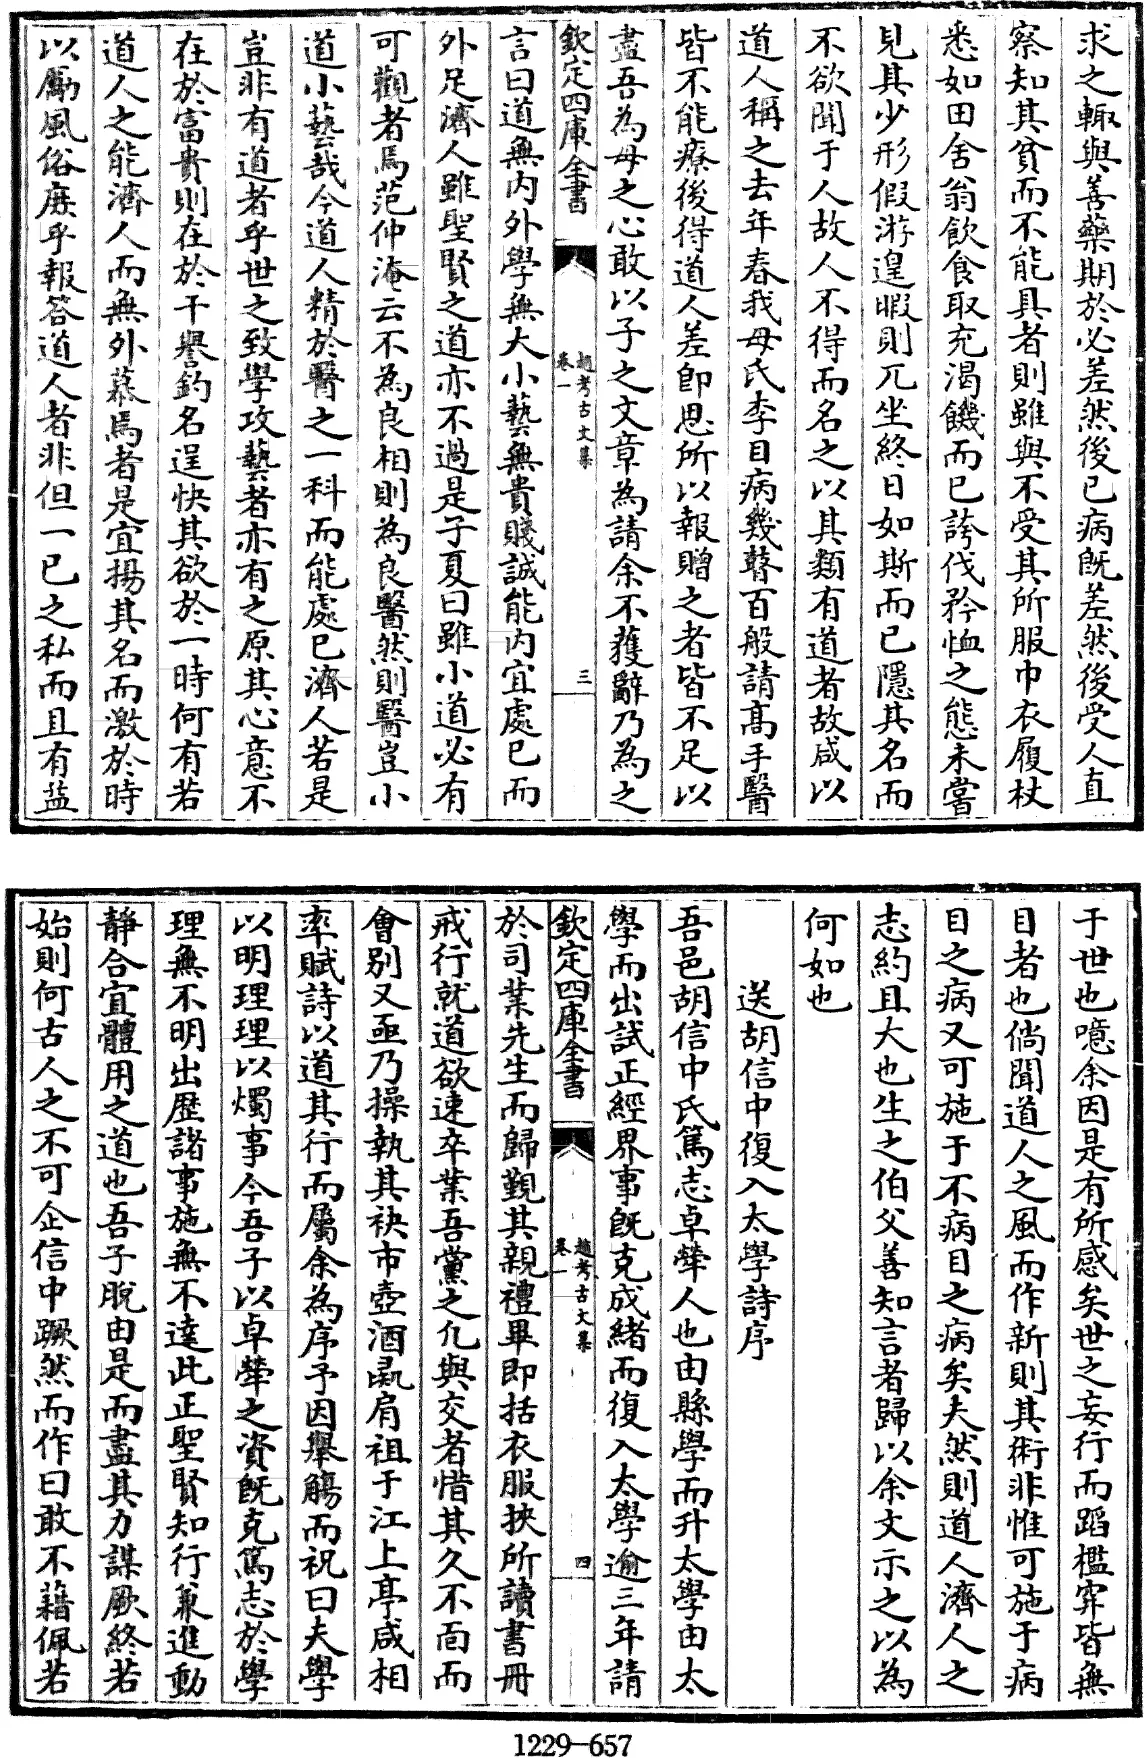 求之輙與善藥期於必差然後已病既差然後受人直
察知其貧而不能具者則雖與不受其所服巾衣履杖
悉如田舍翁飲食取充渴饑而已誇伐矜恤之態未嘗
見其少形假游遑暇則兀坐終日如斯而已隱其名而
不欲聞于人故人不得而名之以其類有道者故咸以
道人稱之去年春我母氏李目病幾瞽百般請髙手醫
皆不能療後得道人差即思所以報贈之者皆不足以
盡吾為母之心敢以子之文章為請余不獲辭乃為之
欽定四庫全書
趙考古文集
卷一
三
言曰道無内外學無大小藝無貴賤誠能内宜處已而
外足濟人雖聖賢之道亦不過是子夏曰雖小道必有
可觀者焉范仲淹云不為良相則為良醫然則醫豈小
道小藝哉今道人精於醫之一科而能處已濟人若是
豈非有道者乎世之致學攻藝者亦有之原其心意不
在於富貴則在於干譽釣名逞快其欲於一時何有若
道人之能濟人而無外慕焉者是宜揚其名而激於時
以勵風俗庶乎報答道人者非但一已之私而且有益
于世也噫余因是有所感矣世之妄行而蹈檻穽皆無
目者也倘聞道人之風而作新則其術非惟可施于病
目之病又可施于不病目之病矣夫然則道人濟人之
志約且大也生之伯父善知言者歸以余文示之以為
何如也
送胡信中復入太學詩序
吾邑胡信中氏篤志卓犖人也由縣學而升太學由太
學而出試正經界事既克成緒而復入太學逾三年請
欽定四庫全書
趙考古文集
卷一
四
於司業先生而歸覲其親禮畢即括衣服挾所讀書冊
戒行就道欲速卒業吾黨之凢與交者惜其久不靣而
會别又亟乃操執其袂市壺酒彘肩祖于江上亭咸相
率賦詩以道其行而屬余為序予因舉觴而祝曰夫學
以明理理以燭事今吾子以卓犖之資既克篤志於學
理無不明出歴諸事施無不達此正聖賢知行兼進動
静合宜體用之道也吾子脫由是而盡其力謀厥終若
始則何古人之不可企信中蹶然而作曰敢不藉佩若
1229-657